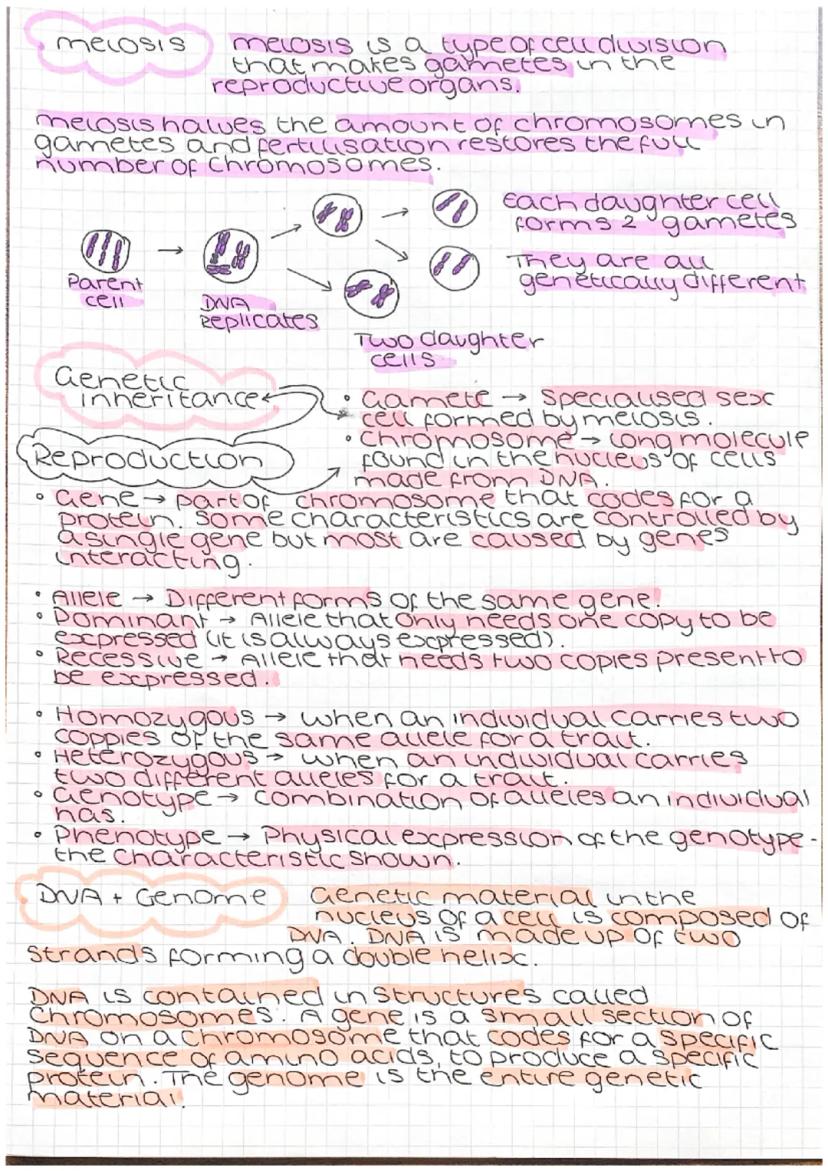 meiosis
meiosis is a type of cell division
that makes gametes in the
reproductive organs.
meiosis halves the amount of chromosomes in
gametes and fertilisation restores the full
number of chromosomes.
Parent
cell
DNA
Replicates
Two daughter
cells
Each daughter cell
forms 2 gametes
They are all
genetically different
Genetic
inheritance
Reproduction
• Gamete → Specialised sex
cell formed by meiosis.
• Chromosome → Long molecule
found in the nucleus of cells
made from DNA.
• Gene → part of chromosome that codes for a
protein. Some characteristics are controlled by
a single gene but most are caused by genes
interacting.
• Allele → Different forms of the same gene.
• Dominant → Allele that only needs one copy to be
expressed (it is always expressed).
• Recessive → Allele that needs two copies present to
be expressed.
• Homozygous → when an individual carries two
coppies of the same allele for a trait.
• Heterozygous → when an individual carries
two different alleles for a trait.
• Genotype → Combination of alleles an individual
has.
• Phenotype → Physical expression of the genotype -
the characteristic shown.
DNA + Genome
Genetic material in the
nucleus of a cell is composed of
DNA. DNA is made up of two
strands forming a double helix.
DNA is contained in structures called
Chromosomes. A gene is a small section of
DNA on a chromosome that codes for a specific
sequence of amino acids, to produce a specific
protein. The genome is the entire genetic
material.